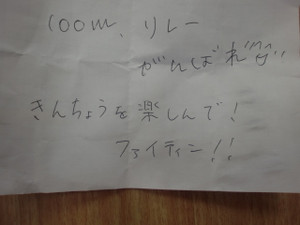 100m、リレー
がんばれ!!
きんちょうを楽しんで!
ファイティン!!